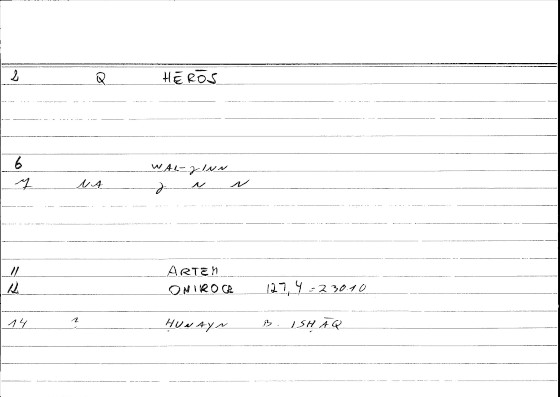 2 Q HĒRŌS
6 WAL-ǧINN
7 NA ǧ N N
11 ARTEM
12 ONIROCR 127,4 = 23010
14 1 ḤUNAYN B. ISḤĀQ